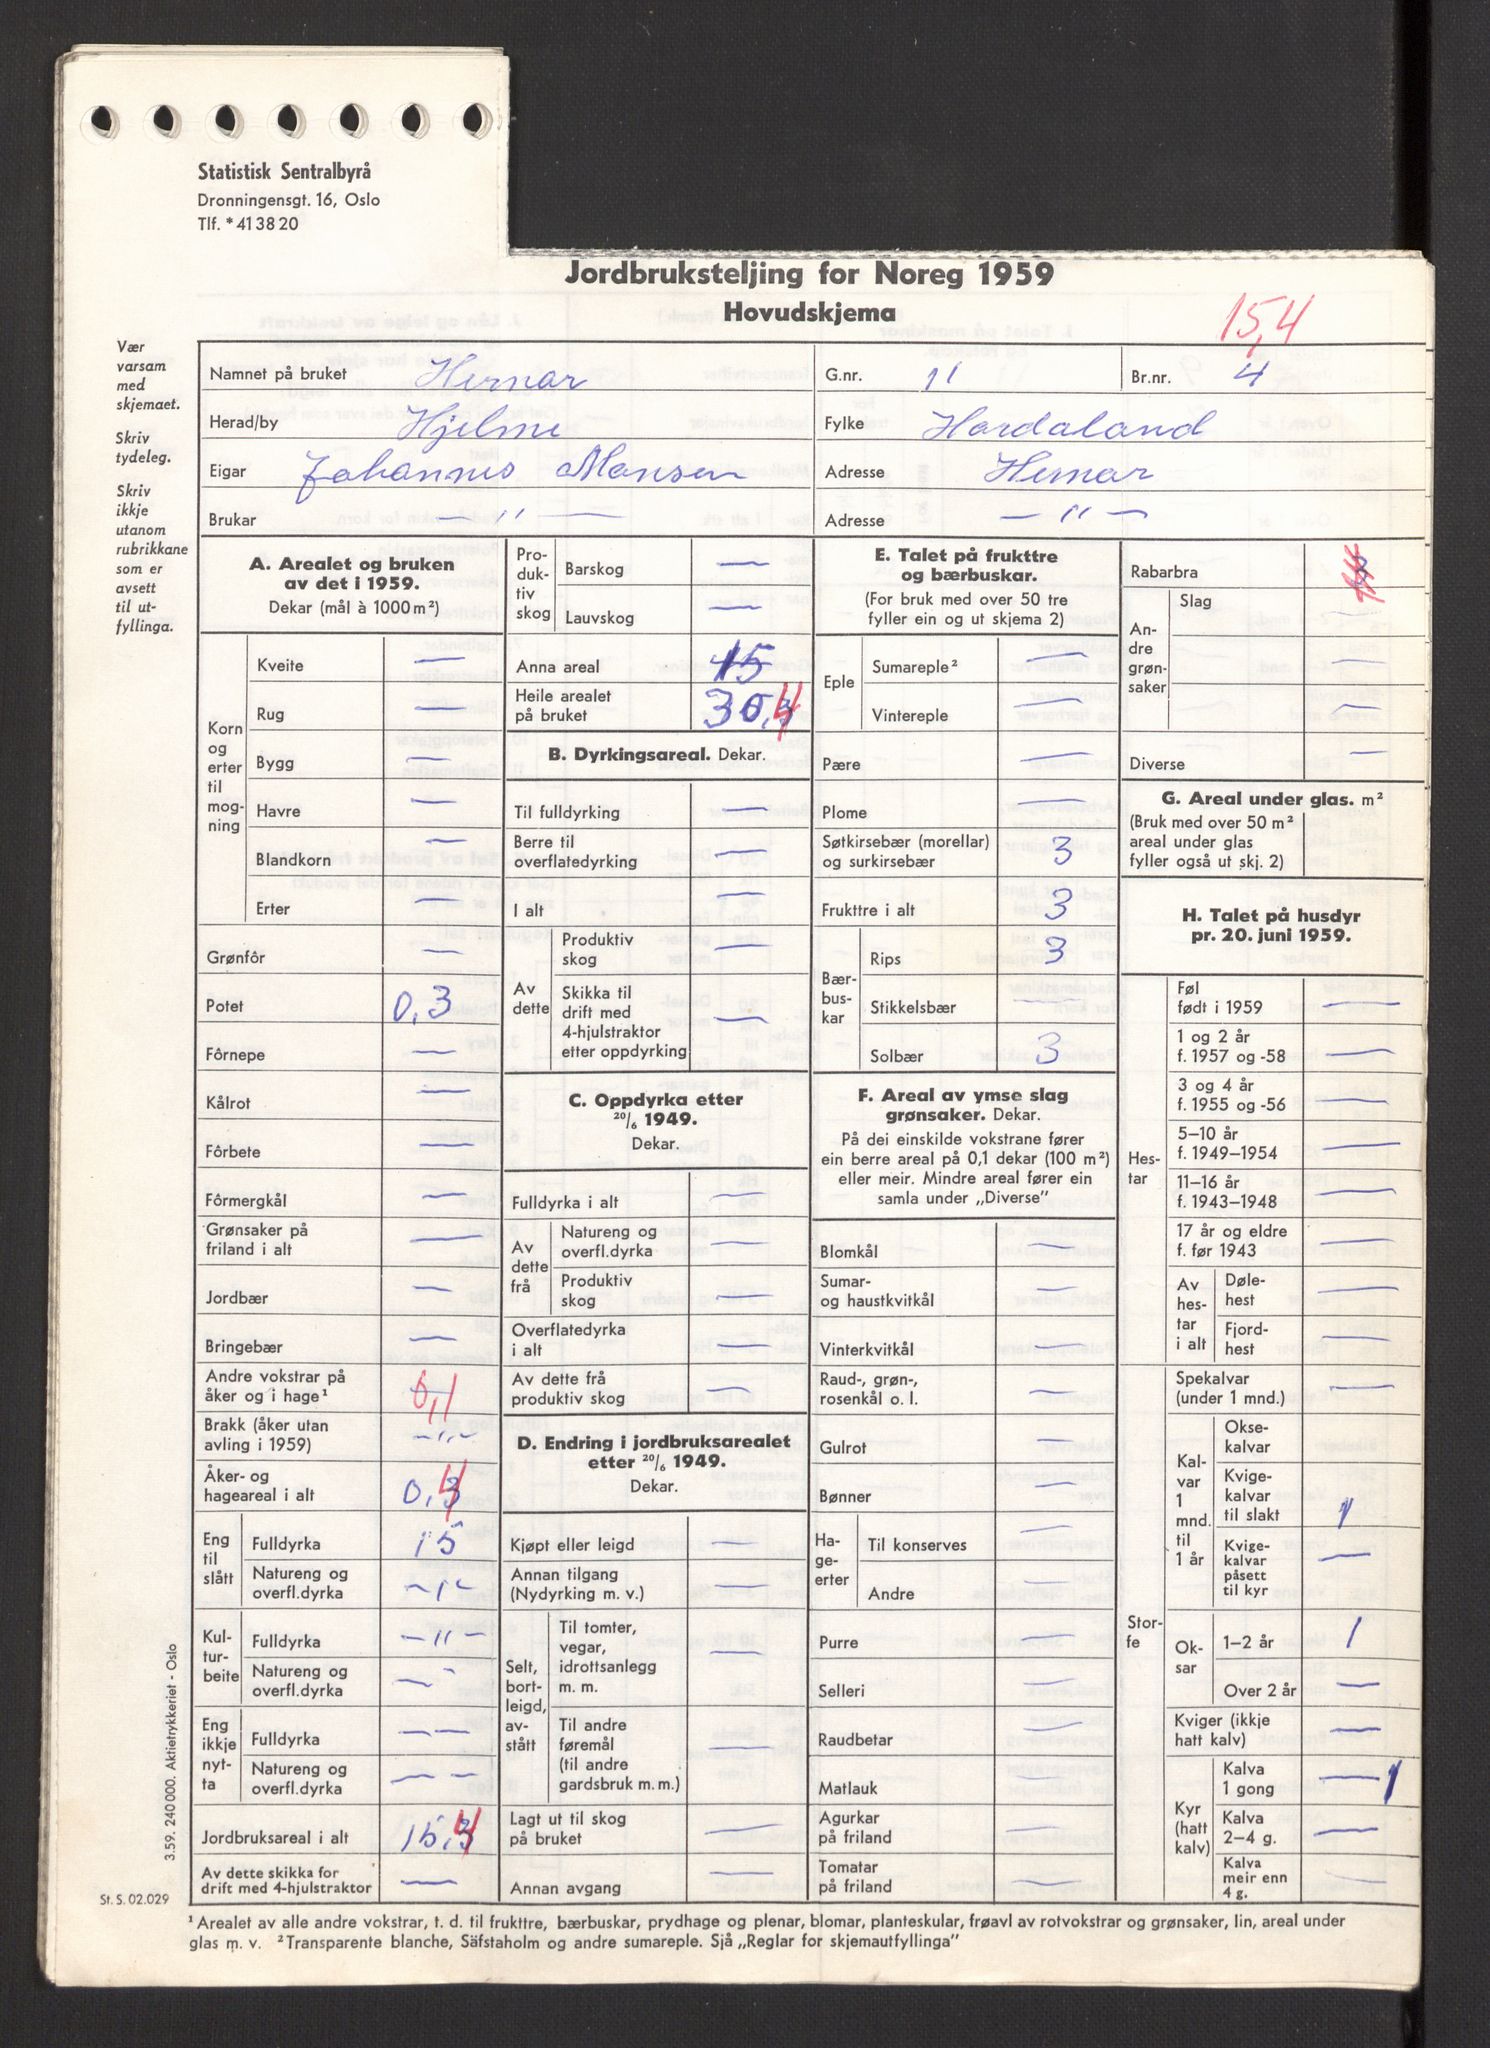 Statistisk Sentralbyrå
Dronningensgt. 16, Oslo
Tlf. *41 38 20
Jordbruksteljing for Noreg 1959
Hovudskjema
15,4
Vær
varsam
med
skjemaet.
Skriv
tydeleg.
Skriv
ikkje
utanom
rubrikkane
som er
avsett
til ut-
fyllinga.
Namnet på bruket Hernar G.nr. 11 Br.nr. 4
Herad/by Hjelme Fylke Hordaland
Eigar Johannes Monsen Adresse Hernar
Brukar — " — Adresse — " —
A. Arealet og bruken
av det i 1959.
Dekar (mål à 1000 m²)
Korn
og
erter
til
mog-
ning
Kveite —
Rug —
Bygg —
Havre —
Blandkorn —
Erter —
Grønfôr —
Potet 0,3
Fôrnepe —
Kålrot —
Fôrbete —
Fôrmergkål —
Grønsaker på
friland i alt —
Jordbær —
Bringebær —
Andre vokstrar på
åker og i hage¹ 0,1
Brakk (åker utan
avling i 1959) — " —
Åker- og
hageareal i alt 0,4
Eng
til
slått
Fulldyrka 15
Natureng og
overfl.dyrka — " —
Kul-
tur-
beite
Fulldyrka — " —
Natureng og
overfl.dyrka — " —
Eng
ikkje
nyt-
ta
Fulldyrka — —
Natureng og
overfl.dyrka — —
Jordbruksareal i alt 15,4
Av dette skikka for
drift med 4-hjulstraktor —
Pro-
duk-
tiv
skog
Barskog —
Lauvskog —
Anna areal 15
Heile arealet
på bruket 30,4
B. Dyrkingsareal. Dekar.
Til fulldyrking —
Berre til
overflatedyrking —
I alt —
Av
dette
Produktiv
skog —
Skikka til
drift med
4-hjulstraktor
etter oppdyrking —
C. Oppdyrka etter
20/6 1949.
Dekar.
Fulldyrka i alt —
Av
dette
frå
Natureng og
overfl.dyrka —
Produktiv
skog —
Overflatedyrka
i alt —
Av dette frå
produktiv skog —
D. Endring i jordbruksarealet
etter 20/6 1949.
Dekar.
Kjøpt eller leigd —
Annan tilgang
(Nydyrking m. v.) —
Selt,
bort-
leigd,
av-
stått
Til tomter,
vegar,
idrottsanlegg
m. m. —
Til andre
føremål
(til andre
gardsbruk m. m.) —
Lagt ut til skog
på bruket —
Annan avgang —
E. Talet på frukttre
og bærbuskar.
(For bruk med over 50 tre
fyller ein og ut skjema 2)
Eple
Sumareple² —
Vintereple —
Pære —
Plome —
Søtkirsebær (morellar)
og surkirsebær 3
Frukttre i alt 3
Bær-
bus-
kar
Rips 3
Stikkelsbær —
Solbær 3
F. Areal av ymse slag
grønsaker. Dekar.
På dei einskilde vokstrane fører
ein berre areal på 0,1 dekar (100 m²)
eller meir. Mindre areal fører ein
samla under „Diverse”
Blomkål —
Sumar-
og haustkvitkål —
Vinterkvitkål —
Raud-, grøn-,
rosenkål o. l. —
Gulrot —
Bønner —
Ha-
ge-
erter
Til konserves —
Andre —
Purre —
Selleri —
Raudbetar —
Matlauk —
Agurkar
på friland —
Tomatar
på friland —
Rabarbra
An-
dre
grøn-
saker
Slag
—
—
Diverse —
G. Areal under glas. m²
(Bruk med over 50 m²
areal under glas
fyller også ut skj. 2)
H. Talet på husdyr
pr. 20. juni 1959.
Hes-
tar
Føl
født i 1959 —
1 og 2 år
f. 1957 og -58 —
3 og 4 år
f. 1955 og -56 —
5–10 år
f. 1949–1954 —
11–16 år
f. 1943–1948 —
17 år og eldre
f. før 1943 —
Av
hes-
tar
i alt
Døle-
hest —
Fjord-
hest —
Stor-
fe
Spekalvar
(under 1 mnd.) —
Kal-
var
1
mnd.
til
1 år
Okse-
kalvar
Kvige-
kalvar
til slakt 1
Kvige-
kalvar
påsett
til kyr —
Ok-
sar
1–2 år 1
Over 2 år —
Kviger (ikkje
hatt kalv) —
Kyr
(hatt
kalv)
Kalva
1 gong — 1
Kalva
2–4 g. —
Kalva
meir enn
4 g. —
3.59. 240 000. Aktietrykkeriet - Oslo
St. S. 02.029
¹ Arealet av alle andre vokstrar, t. d. til frukttre, bærbuskar, prydhage og plenar, blomar, planteskular, frøavl av rotvokstrar og grønsaker, lin, areal under
glas m. v. ² Transparente blanche, Säfstaholm og andre sumareple. Sjå „Reglar for skjemautfyllinga”